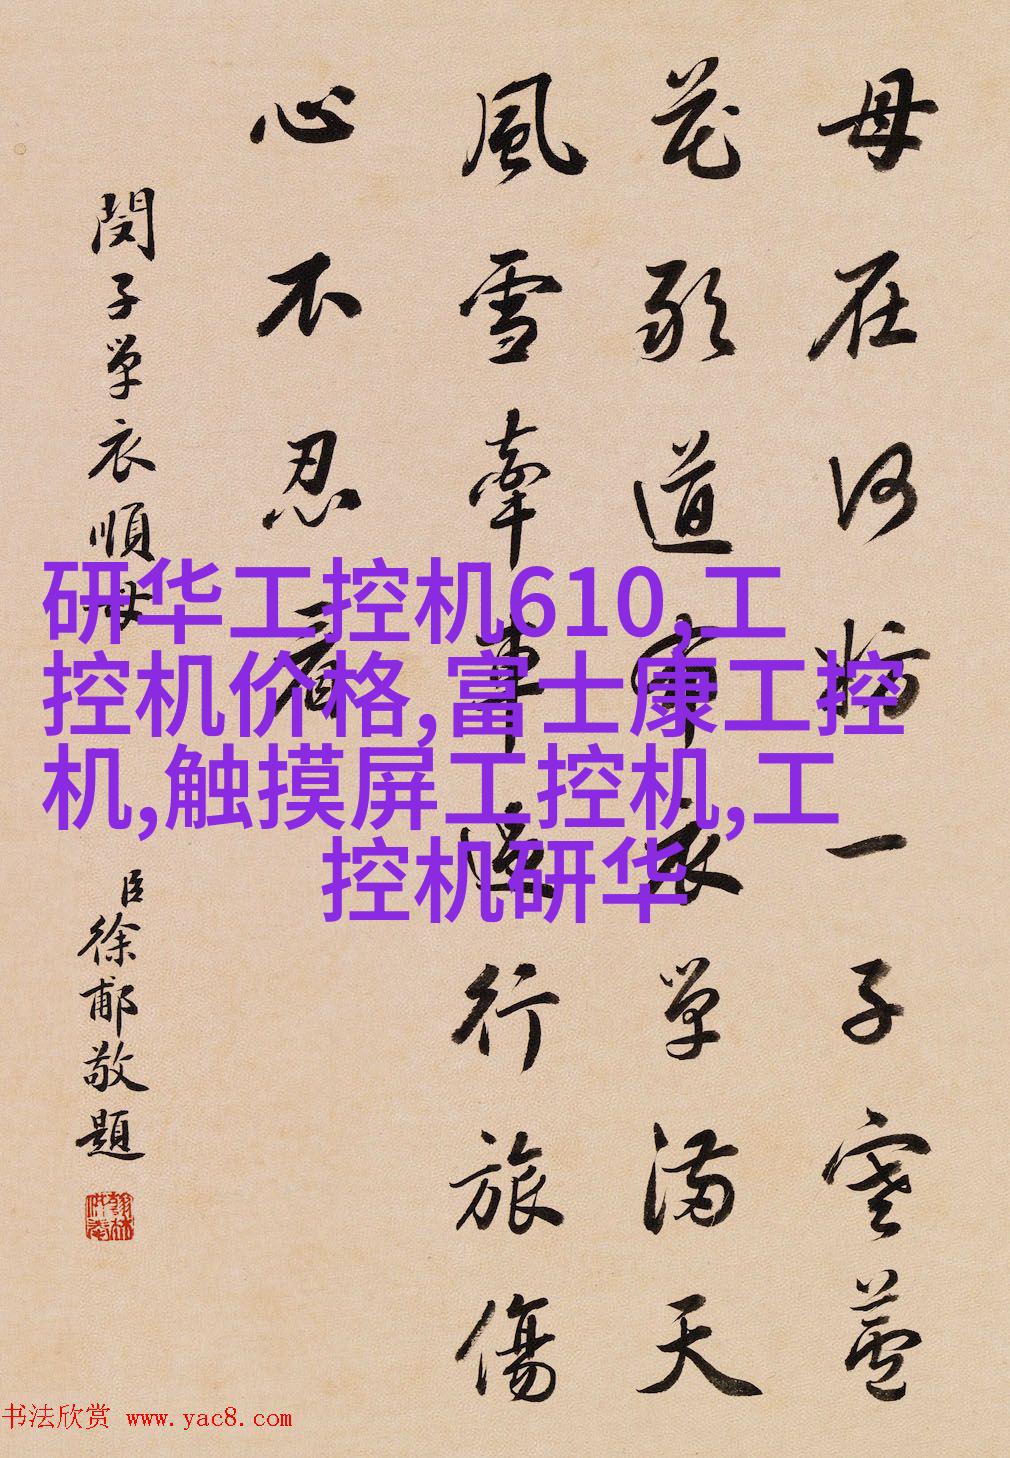 母在何妨一子寒蘆
花敢道布衣單滿天
風雪牽車行旅傷
心不忍看
閔子單衣順母
臣徐郙敬題
研华工控机610,工
控机价格,富士康工控
机,触摸屏工控机,工
控机研华
书法欣赏 www.yac8.com